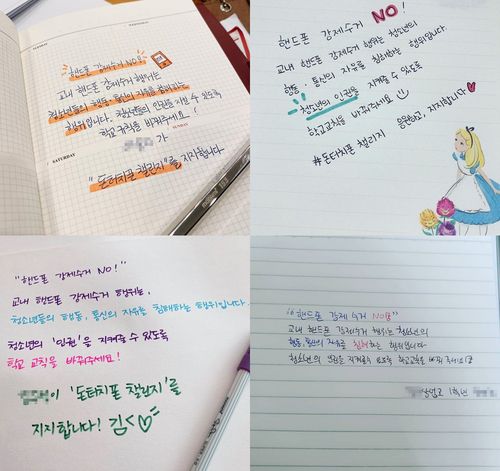 SATURDAY
SUNDAY
핸드폰 강제수거 NO!
교내 핸드폰 강제수거 행위는
청소년들의 행동, 통신의 자유를 침해하는
행위입니다. 청소년들의 인권을 지켜 줄 수 있도록
학교 규칙을 바꿔주세요!
가
"돈터치폰 챌린지"를 지지합니다
핸드폰 강제수거 NO!
교내 핸드폰 강제수거 행위는 청소년의
행동, 통신의 자유를 침해하는 행위입니다.
청소년의 인권을 지켜줄 수 있도록
학교교칙을 바꿔주세요
응원하고, 지지합니다
#돈터치폰 챌린지
"핸드폰 강제수거 NO!"
교내 핸드폰 강제수거 행위는,
청소년들의 행동, 통신의 자유를 침해하는 행위입니다.
청소년의 '인권'을 지켜줄 수 있도록
학교 교칙을 바꿔주세요!
이 '돈터치폰 챌린지'를
지지합니다! 김<
"핸드폰 강제수거 NO!"
교내 핸드폰 강제수거 행위는 청소년의
행동, 통신의 자유를 침해하는 행위입니다
청소년의 인권을 지켜줄수 있도록 학교교칙을 바꿔 주세요
상업고 1학년